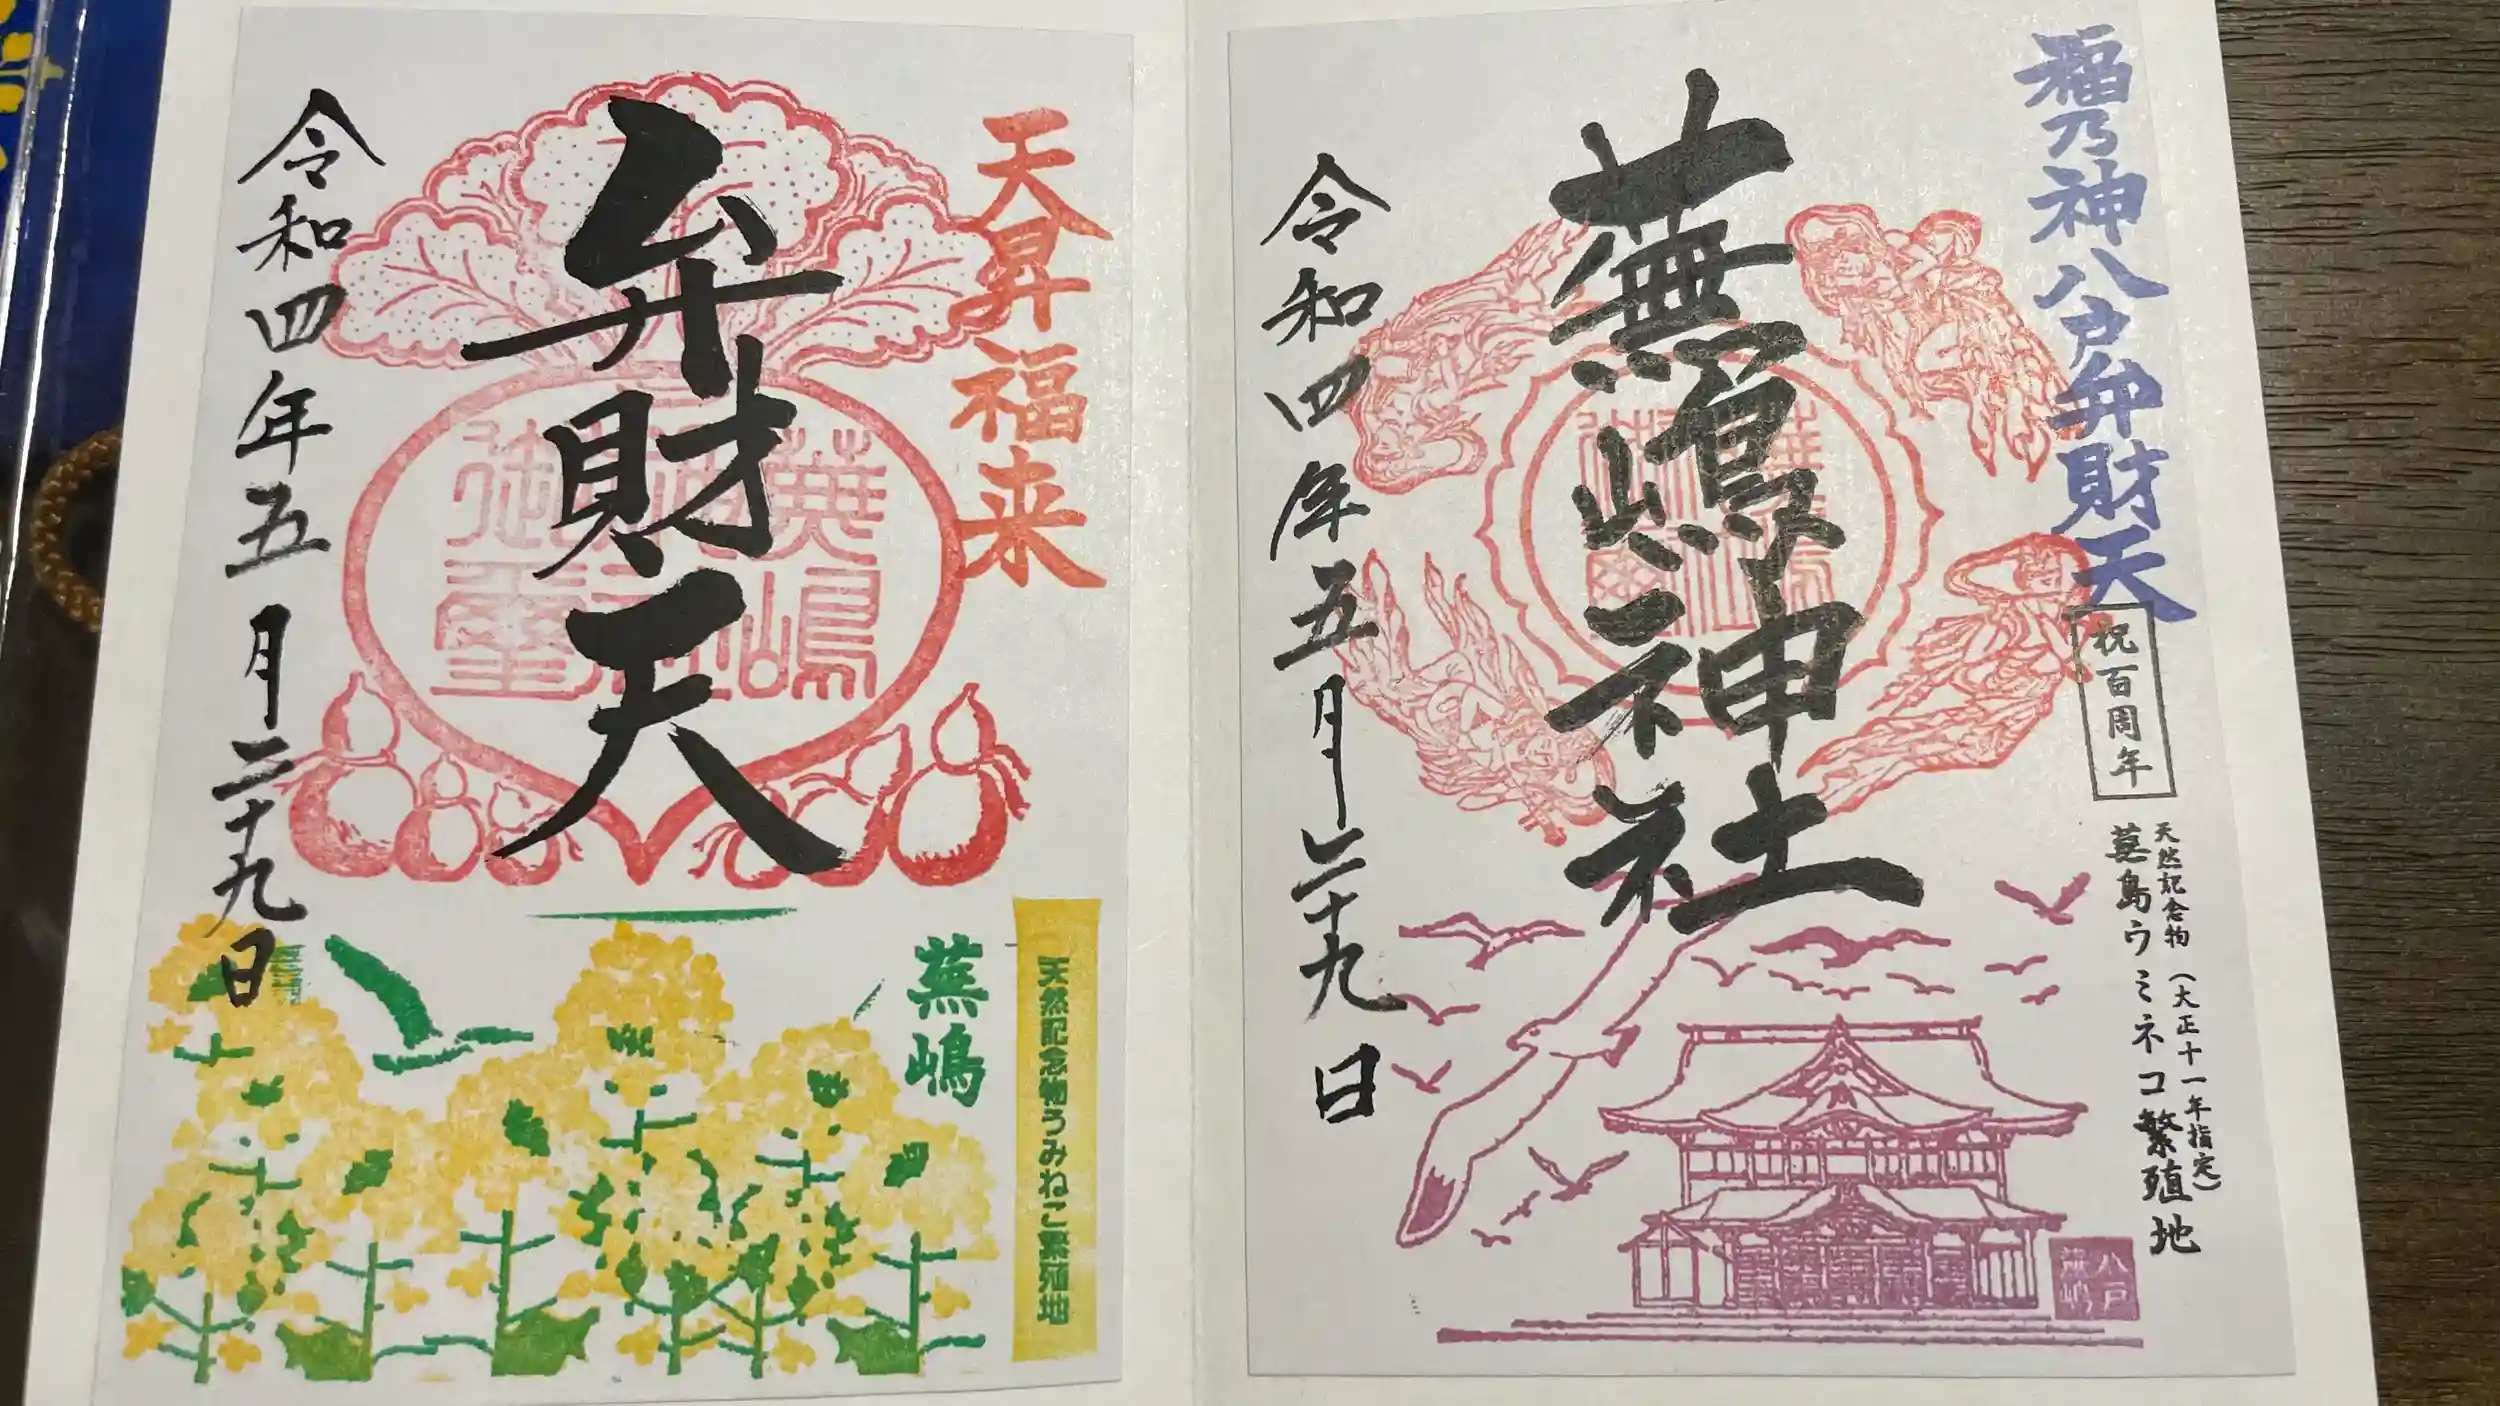 福乃神八戸弁財天
祝百周年
天然記念物(大正十一年指定)
蕪島ウミネコ繁殖地
蕪嶋神社
令和四年五月二十九日
八戸
蕪嶋
天昇福来
弁財天
蕪嶋
御璽
令和四年五月二十九日
天然記念物うみねこ繁殖地
蕪嶋